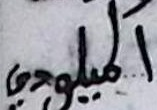 الميلودي